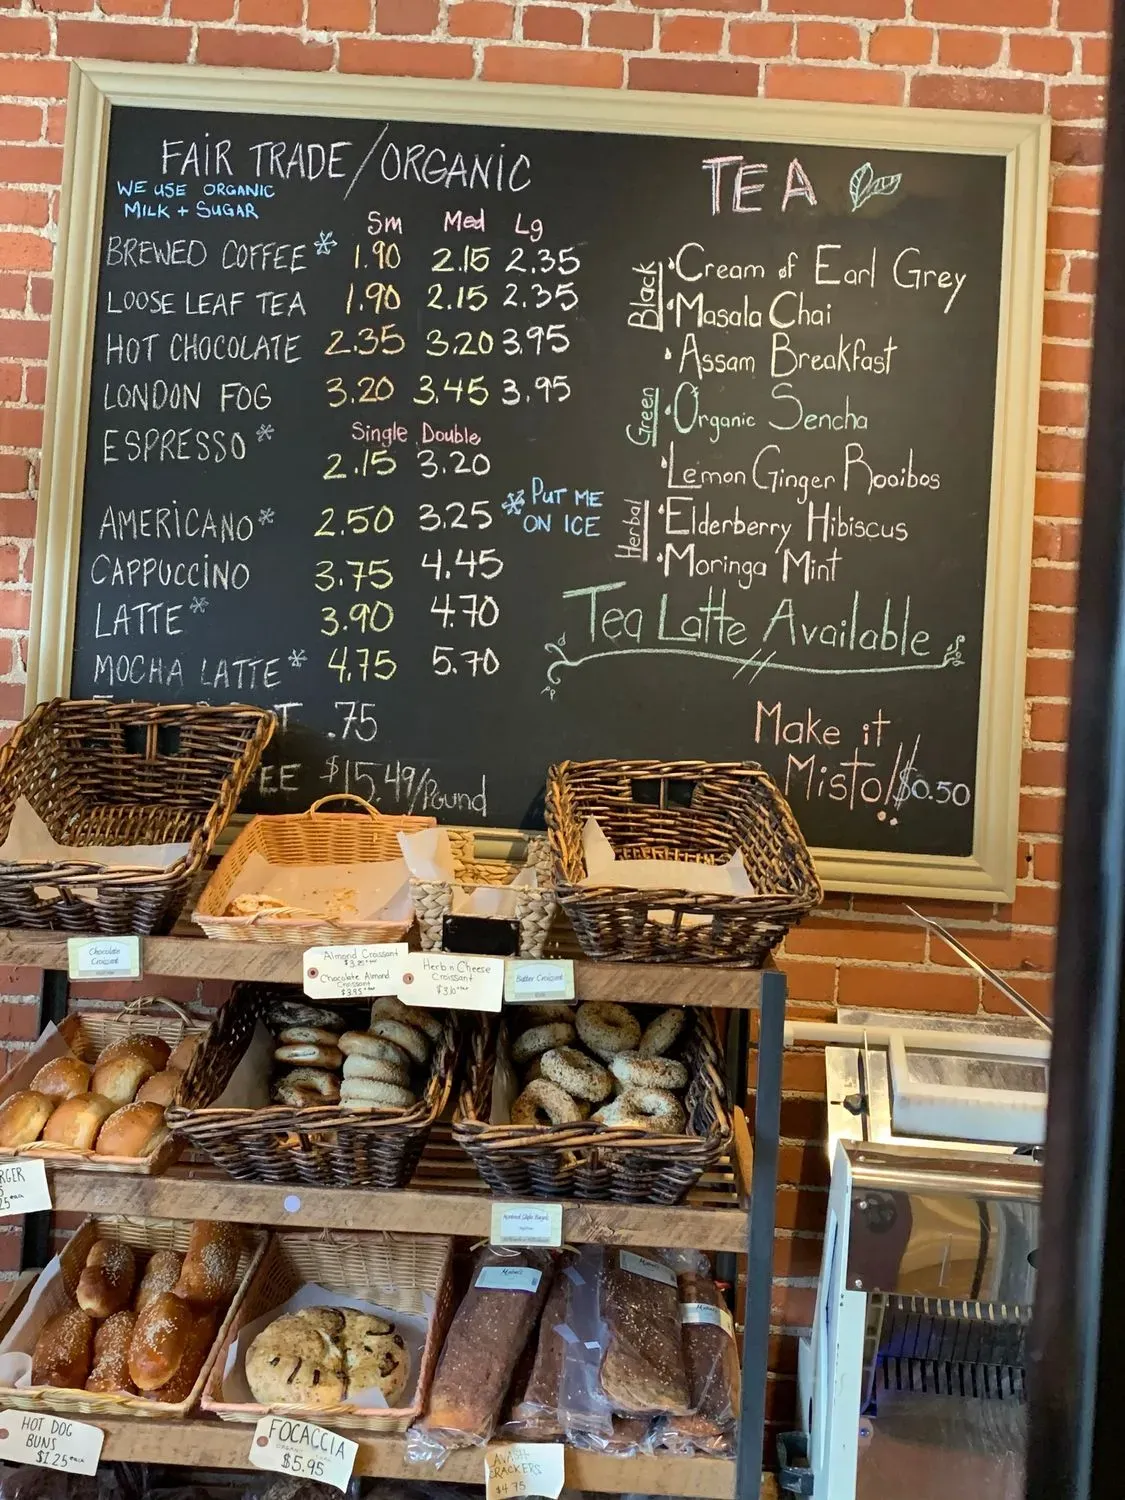 FAIR TRADE/ORGANIC
WE USE ORGANIC
MILK + SUGAR
Sm Med Lg
BREWED COFFEE* 1.90 2.15 2.35
LOOSE LEAF TEA 1.90 2.15 2.35
HOT CHOCOLATE 2.35 3.20 3.95
LONDON FOG 3.20 3.45 3.95
Single Double
ESPRESSO* 2.15 3.20
AMERICANO* 2.50 3.25
CAPPUCCINO 3.75 4.45
LATTE* 3.90 4.70
MOCHA LATTE* 4.75 5.70
.75
$15.49/Pound
*PUT ME
ON ICE
TEA
Black
•Cream of Earl Grey
•Masala Chai
•Assam Breakfast
Green
•Organic Sencha
Herbal
•Lemon Ginger Rooibos
•Elderberry Hibiscus
•Moringa Mint
Tea Latte Available
Make it
Misto/$0.50
Chocolate
Croissant
Almond Croissant
Chocolate Almond
Croissant
$3.95
Herb n Cheese
Croissant
Butter Croissant
Montreal Style Bagels
HOT DOG
BUNS
$1.25 each
FOCACCIA
$5.95
CRACKERS
$4.75